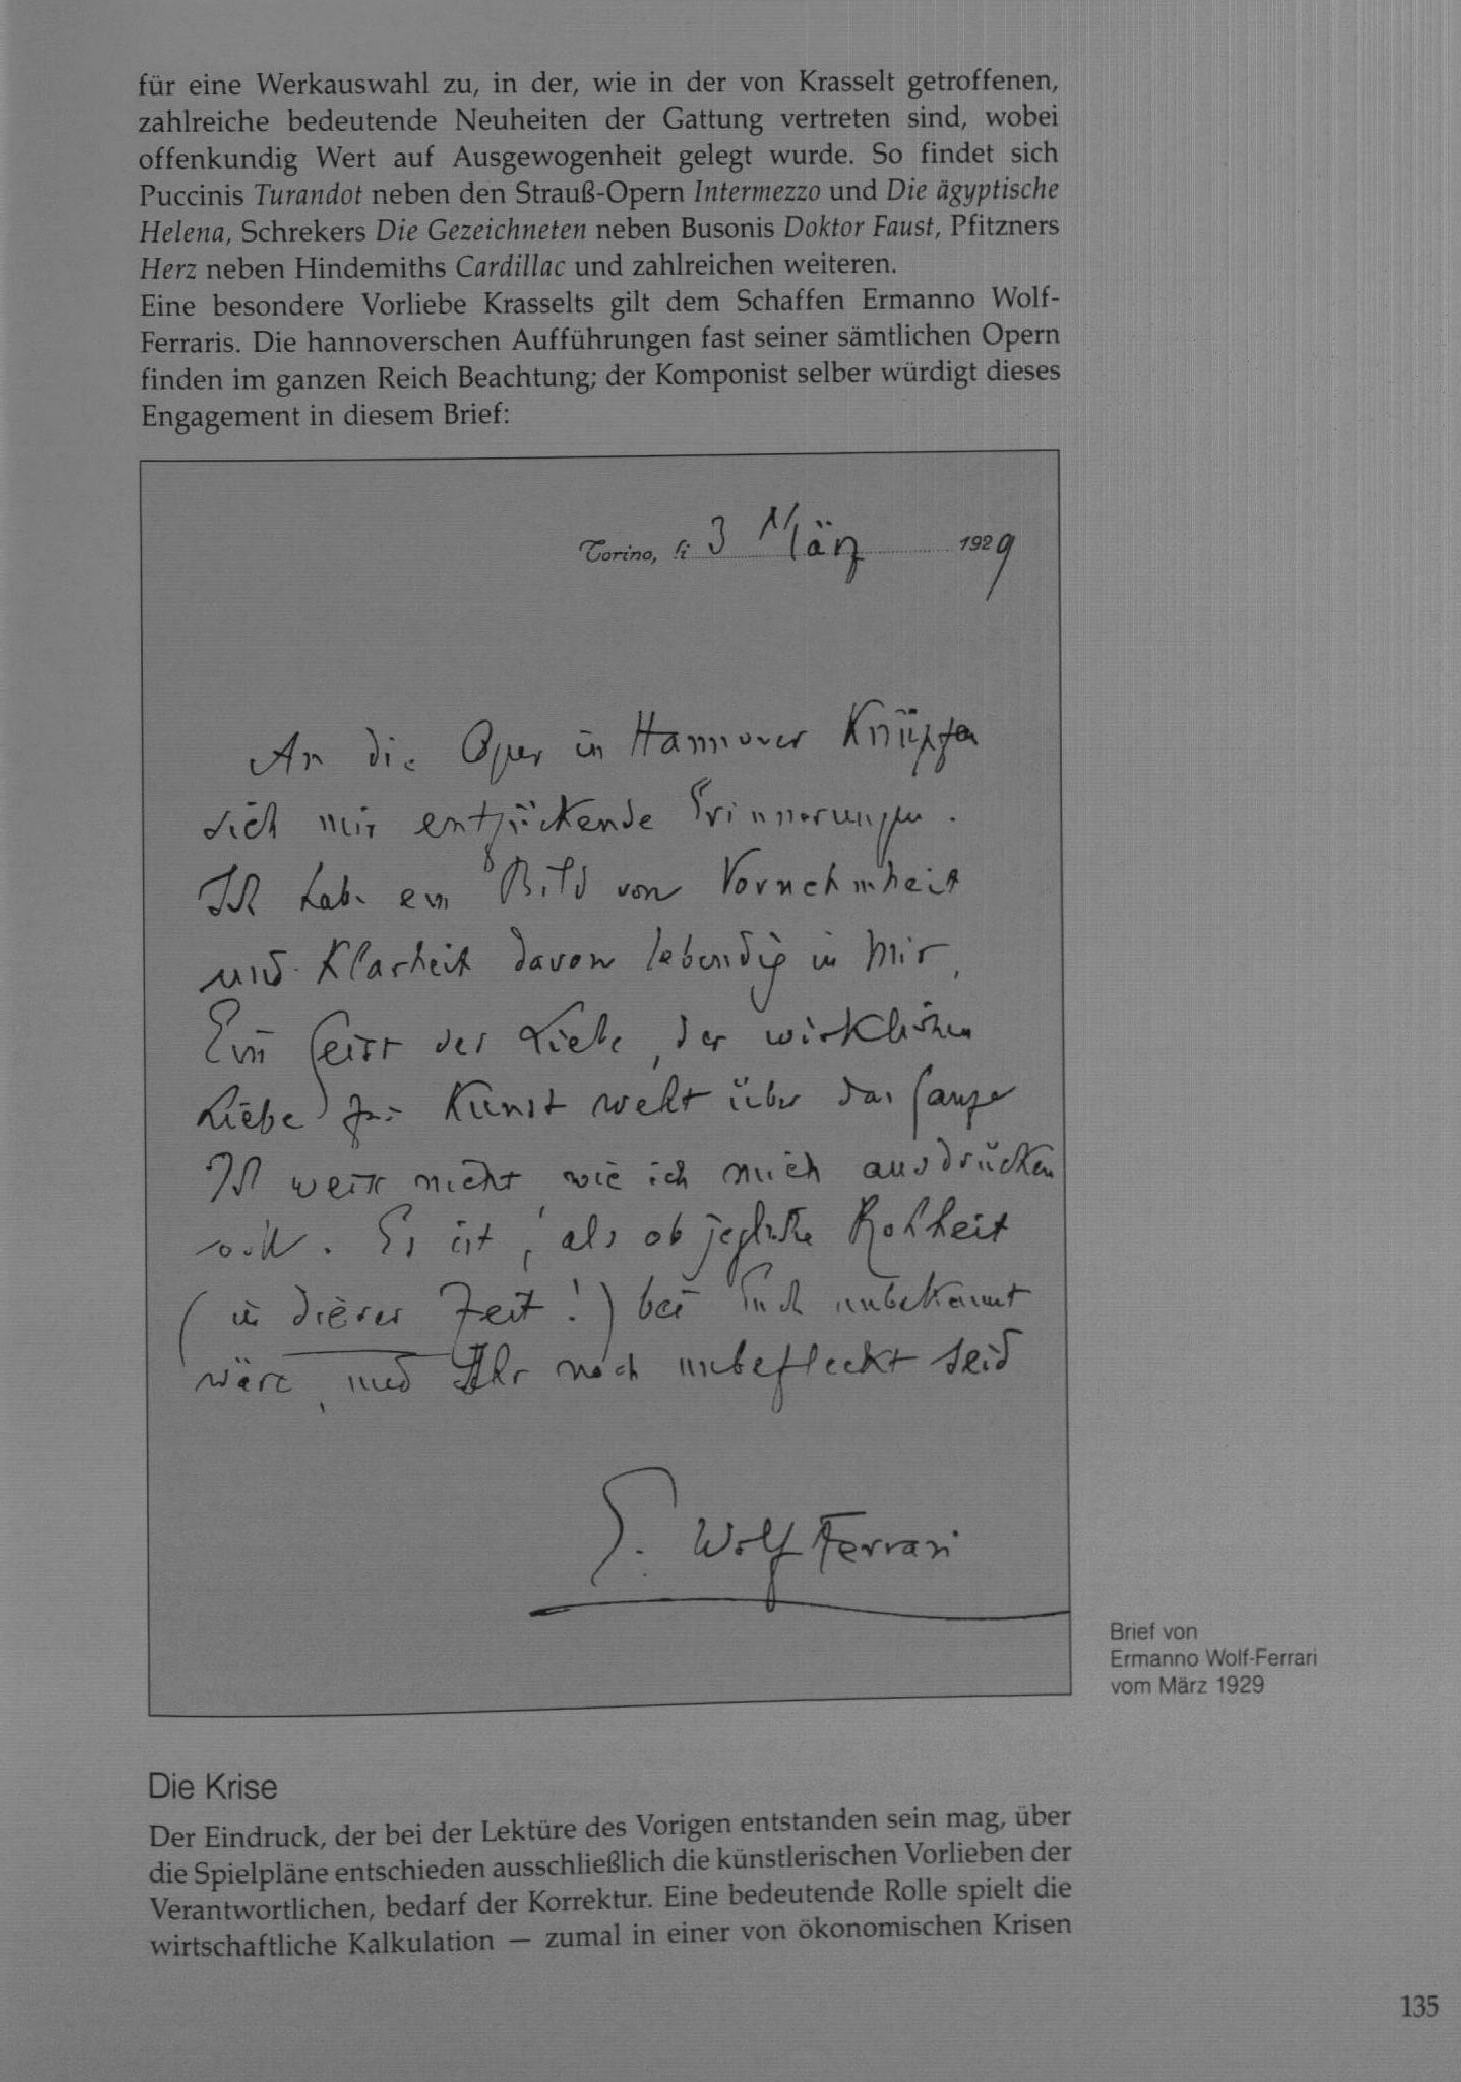 für eine Werkauswahl zu, in der, wie in der von Krasselt getroffenen,
zahlreiche bedeutende Neuheiten der Gattung vertreten sind, wobei
offenkundig Wert auf Ausgewogenheit gelegt wurde. So findet sich
Puccinis Turandot neben den Strauß-Opern Intermezzo und Die ägyptische
Helena, Schrekers Die Gezeichneten neben Busonis Doktor Faust, Pfitzners
Herz neben Hindemiths Cardillac und zahlreichen weiteren.
Eine besondere Vorliebe Krasselts gilt dem Schaffen Ermanno Wolf-
Ferraris. Die hannoverschen Aufführungen fast seiner sämtlichen Opern
finden im ganzen Reich Beachtung; der Komponist selber würdigt dieses
Engagement in diesem Brief:
Torino, li 3 März 1929
An die Oper in Hannover Knüpfen
sich mir entzückende Erinnerungen.
Ich habe ein Bild von Vornehmheit
und Klarheit davon lebendig in mir,
Ein Geist der Liebe, der wirklichen
Liebe zur Kunst weht über das Ganze
Ich weiss nicht wie ich mich ausdrücken
soll. Es ist, als ob jegliche Rohheit
(in dieser Zeit!) bei Euch unbekannt
wäre, und Ihr noch unbefleckt seid
E. Wolf Ferrari
Brief von
Ermanno Wolf-Ferrari
vom März 1929
Die Krise
Der Eindruck, der bei der Lektüre des Vorigen entstanden sein mag, über
die Spielpläne entschieden ausschließlich die künstlerischen Vorlieben der
Verantwortlichen, bedarf der Korrektur. Eine bedeutende Rolle spielt die
wirtschaftliche Kalkulation — zumal in einer von ökonomischen Krisen
135